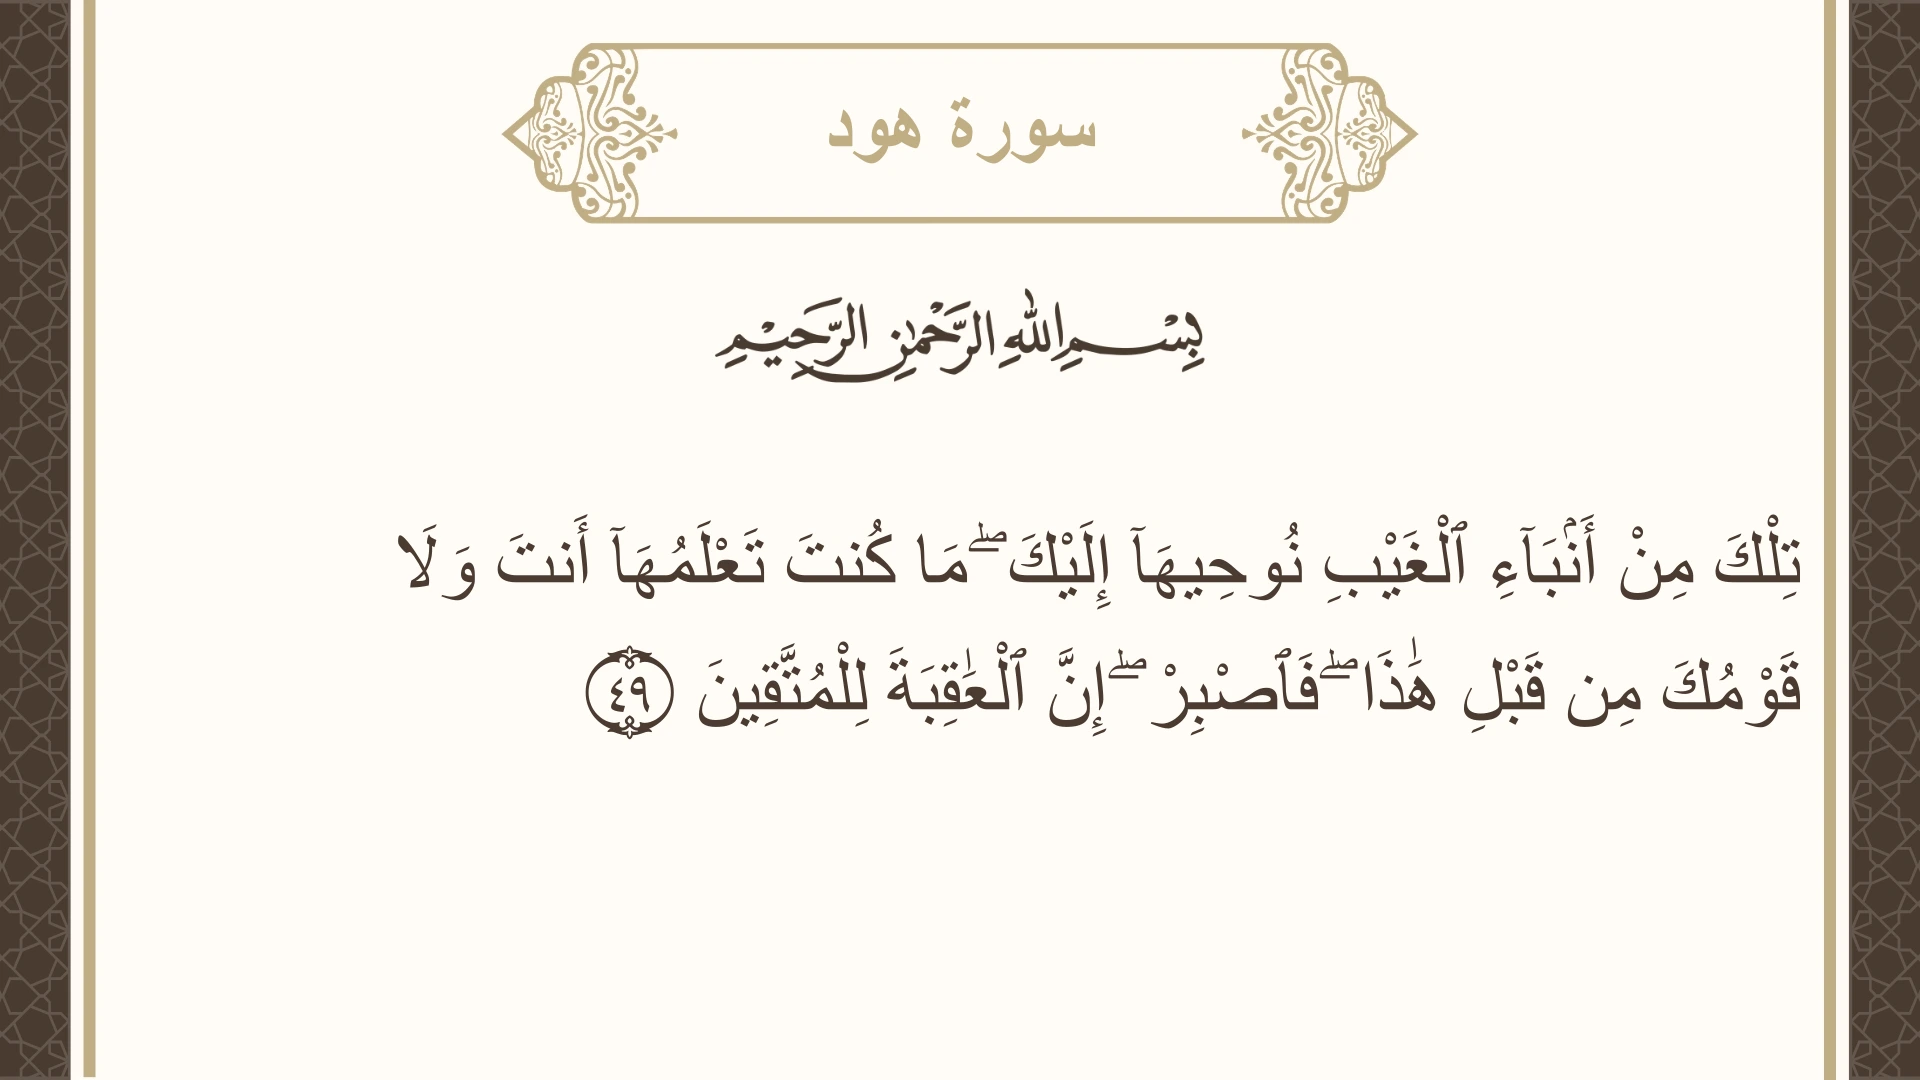 سورة هود
بِسْمِ اللهِ الرَّحْمٰنِ الرَّحِيْمِ
تِلْكَ مِنْ أَنۢبَآءِ ٱلْغَيْبِ نُوحِيهَآ إِلَيْكَ ۖ مَا كُنتَ تَعْلَمُهَآ أَنتَ وَلَا
قَوْمُكَ مِن قَبْلِ هَٰذَا ۖ فَٱصْبِرْ ۖ إِنَّ ٱلْعَٰقِبَةَ لِلْمُتَّقِينَ ٤٩